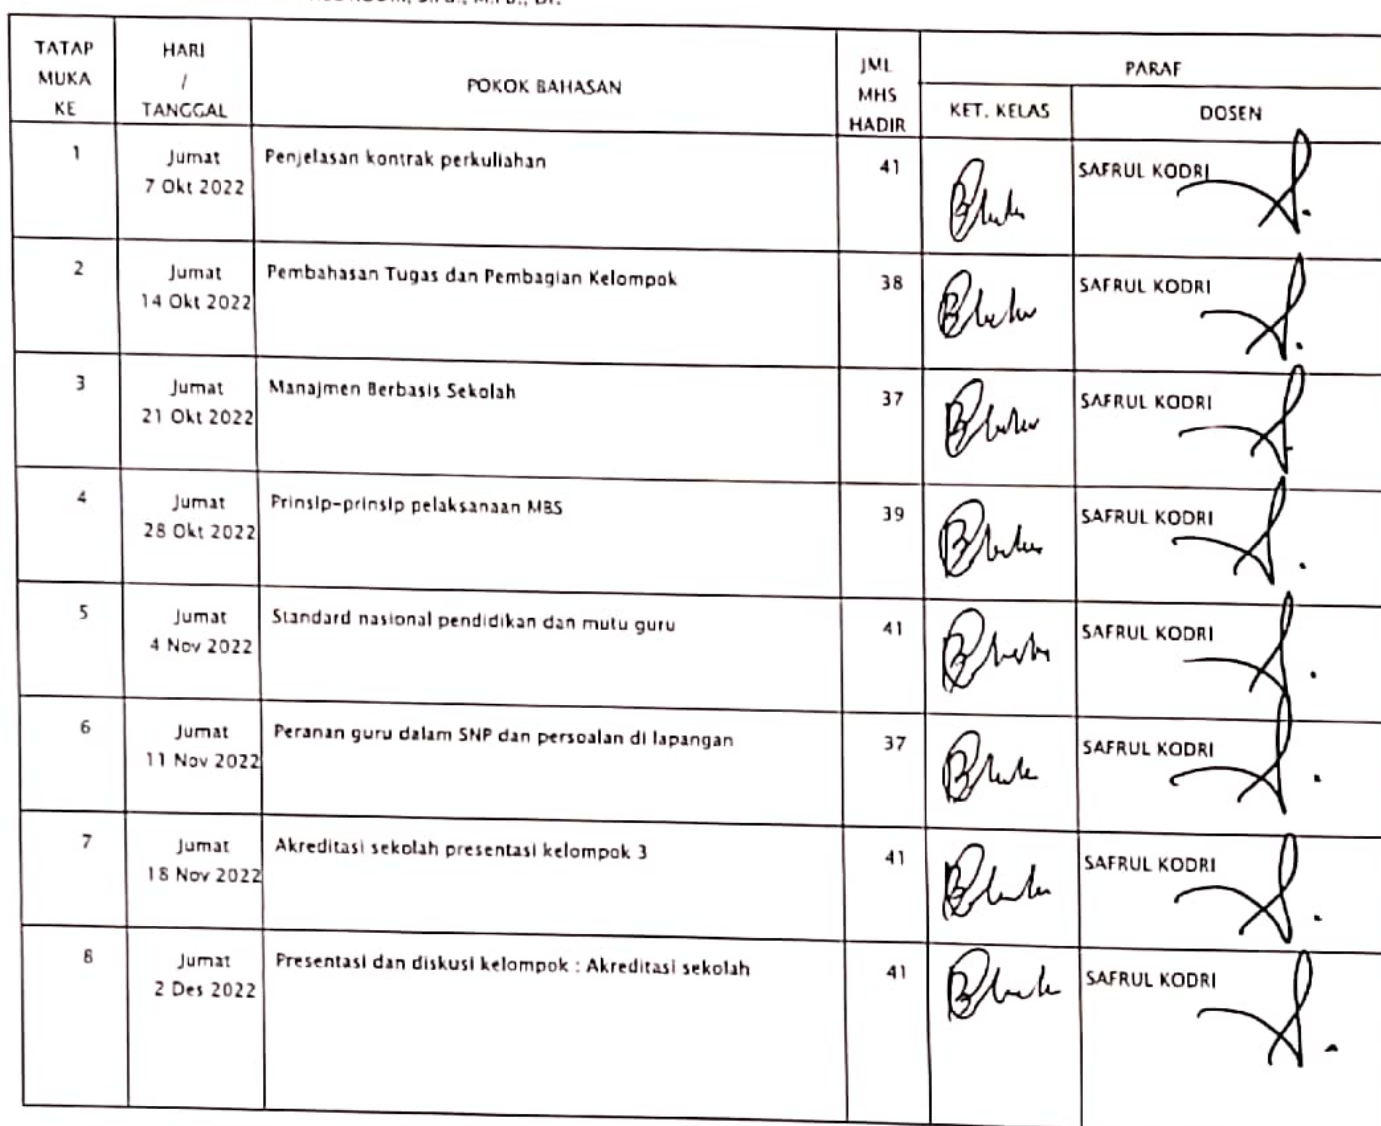 TATAP
MUKA
KE
HARI
/
TANGGAL
POKOK BAHASAN
JML
MHS
HADIR
PARAF
KET. KELAS
DOSEN
1
Jumat
7 Okt 2022
Penjelasan kontrak perkuliahan
41
SAFRUL KODRI
2
Jumat
14 Okt 2022
Pembahasan Tugas dan Pembagian Kelompok
38
SAFRUL KODRI
3
Jumat
21 Okt 2022
Manajmen Berbasis Sekolah
37
SAFRUL KODRI
4
Jumat
28 Okt 2022
Prinsip-prinsip pelaksanaan MBS
39
SAFRUL KODRI
5
Jumat
4 Nov 2022
Standard nasional pendidikan dan mutu guru
41
SAFRUL KODRI
6
Jumat
11 Nov 2022
Peranan guru dalam SNP dan persoalan di lapangan
37
SAFRUL KODRI
7
Jumat
18 Nov 2022
Akreditasi sekolah presentasi kelompok 3
41
SAFRUL KODRI
8
Jumat
2 Des 2022
Presentasi dan diskusi kelompok : Akreditasi sekolah
41
SAFRUL KODRI